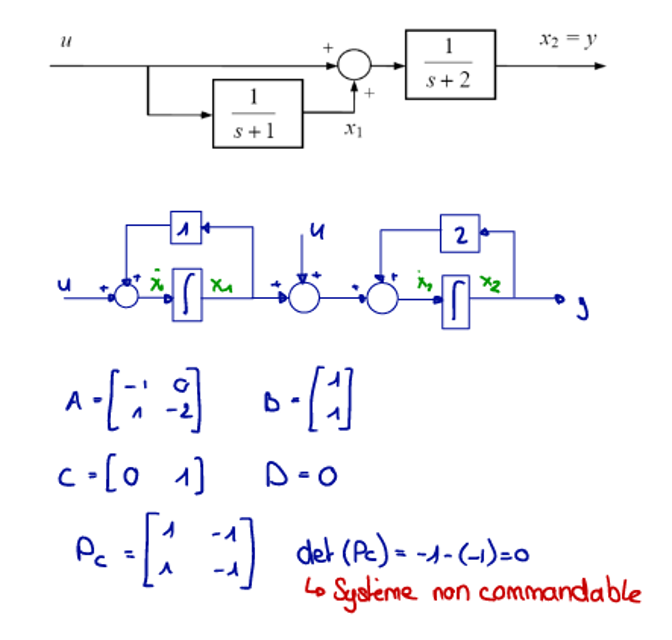 u + 1 / (s + 2) x₂ = y
1 / (s + 1) + x₁
1 u 2
u + + ẋ₁ ∫ x₁ + + + + ẋ₂ ∫ x₂ y
A = [-1 0; 1 -2] B = [1; 1]
C = [0 1] D = 0
Pc = [1 -1; 1 -1] det (Pc) = -1-(-1)=0
↳ Système non commandable